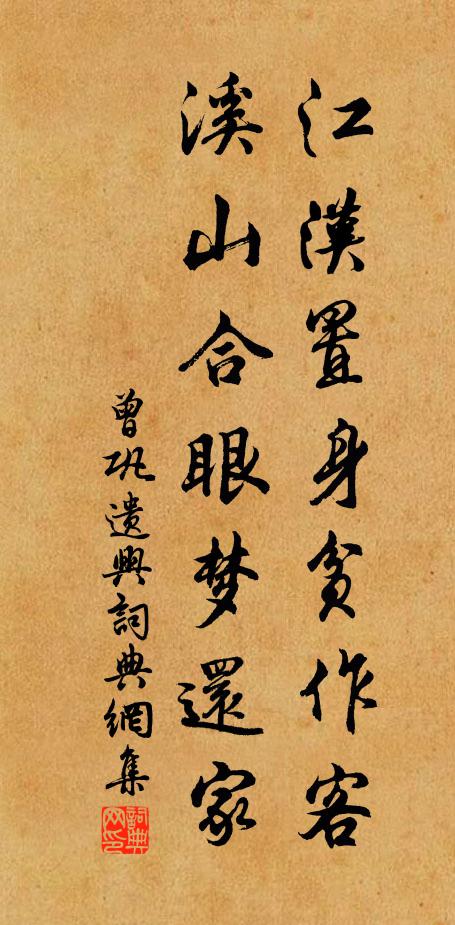 江漢置身貧作客
溪山合眼梦還家
曾巩遣興詞典網集
詞典网印